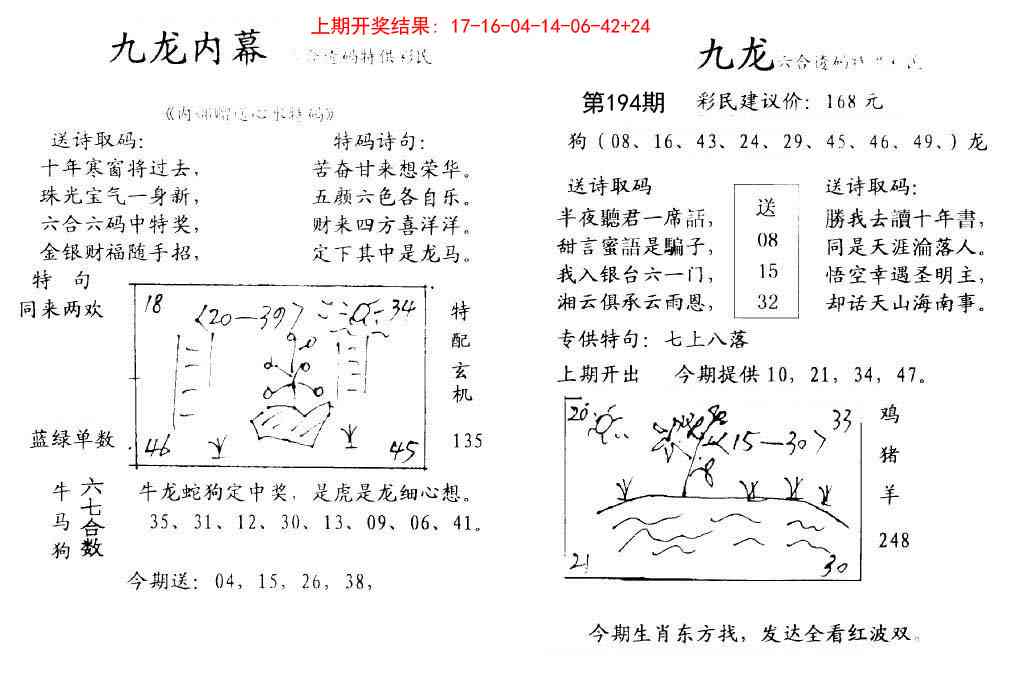 上期开奖结果：17-16-04-14-06-42+24
九龙内幕
码特供彩民
送诗取码：
十年寒窗将过去，
珠光宝气一身新，
六合六码中特奖，
金银财福随手招，
特码诗句：
苦奋甘来想荣华。
五颜六色各自乐。
财来四方喜洋洋。
定下其中是龙马。
特 句
同来两欢
蓝绿单数
18
〈20—39〉
34
46
45
特
配
玄
机
135
牛
马
狗
六七合数
牛龙蛇狗定中奖，是虎是龙细心想。
35、31、12、30、13、09、06、41。
今期送：04，15，26，38，
九龙
六合
第194期
彩民建议价：168元
狗（08、16、43、24、29、45、46、49、）龙
送诗取码
半夜聽君一席話，
甜言蜜語是騙子，
我入银台六一门，
湘云俱承云雨恩，
送
08
15
32
送诗取码：
勝我去讀十年書，
同是天涯渝落人。
悟空幸遇圣明主，
却话天山海南事。
专供特句：七上八落
上期开出 今期提供10，21，34，47。
20
〈15—30〉
33
21
30
鸡
猪
羊
248
今期生肖东方找，发达全看红波双。